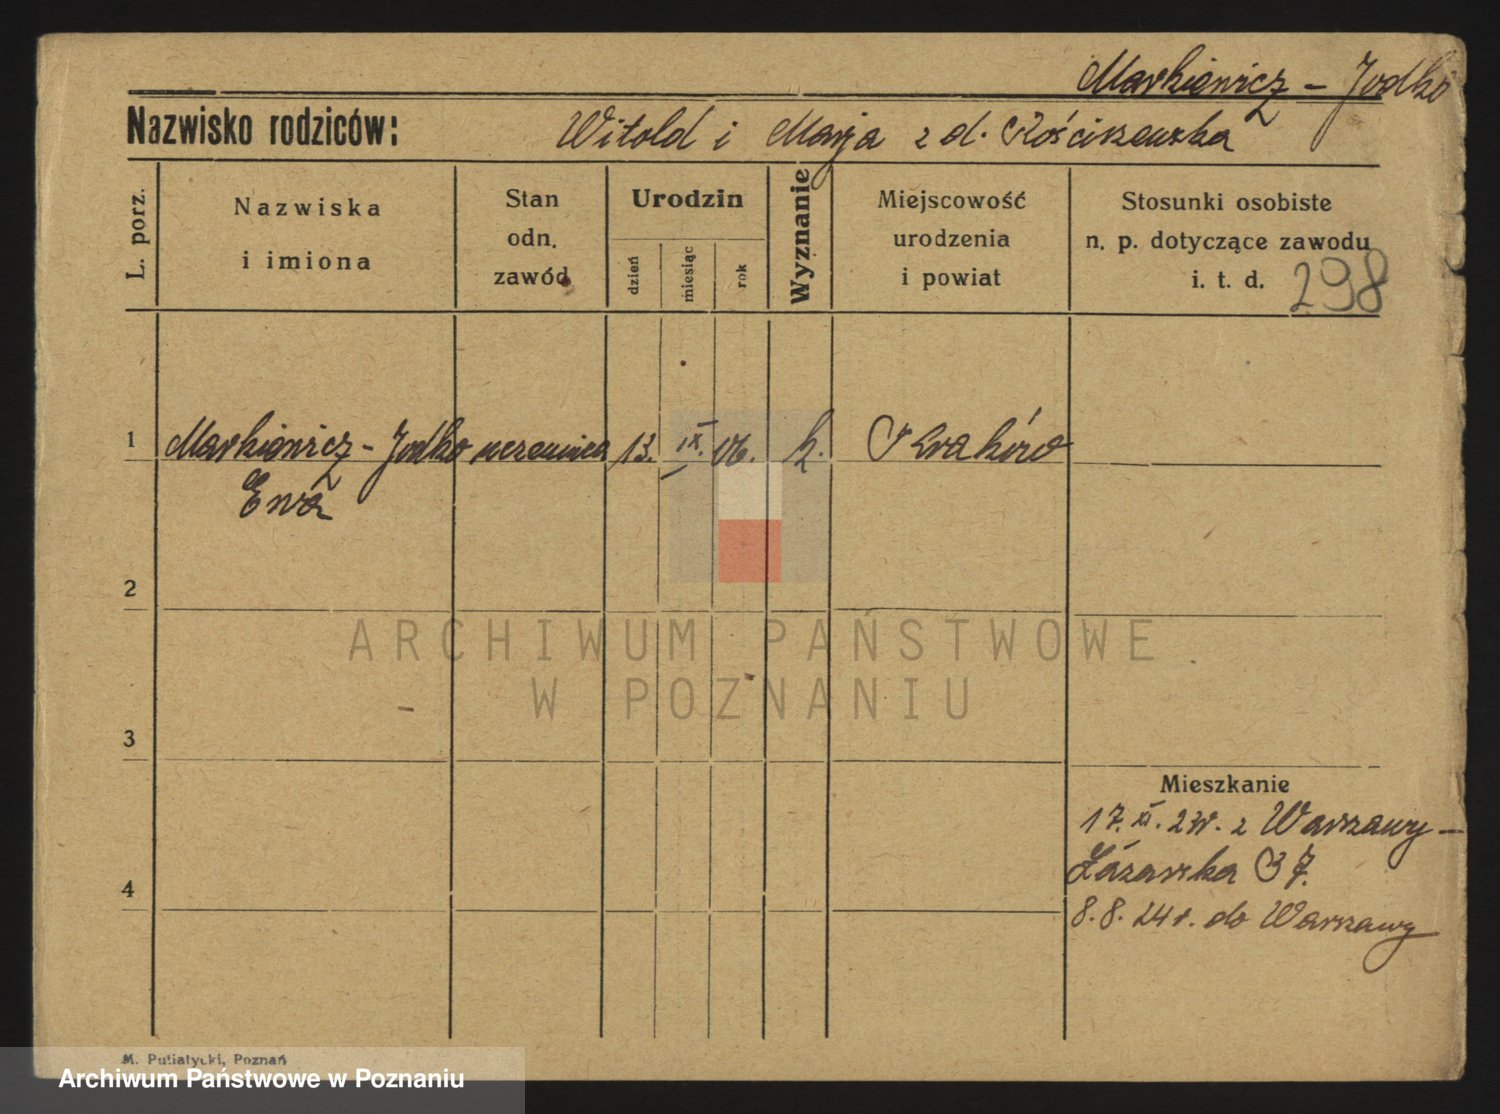 Markiewicz - Jodko
Nazwisko rodziców: Witold i Marja z d. Kościszewska
L. porz.
Nazwiska
i imiona
Stan
odn.
zawód
Urodzin
dzień
miesiąc
rok
Wyznanie
Miejscowość
urodzenia
i powiat
Stosunki osobiste
n. p. dotyczące zawodu
i. t. d.
298
1 Markiewicz - Jodko uczenica 13. IX. 06. k. Kraków
Ewa
2
ARCHIWUM PAŃSTWOWE
W POZNANIU
3
Mieszkanie
17. XI. 23r. z Warszawy -
Łazarska 37.
4
8. 8. 24 r. do Warszawy
M. Putiatycki, Poznań
Archiwum Państwowe w Poznaniu